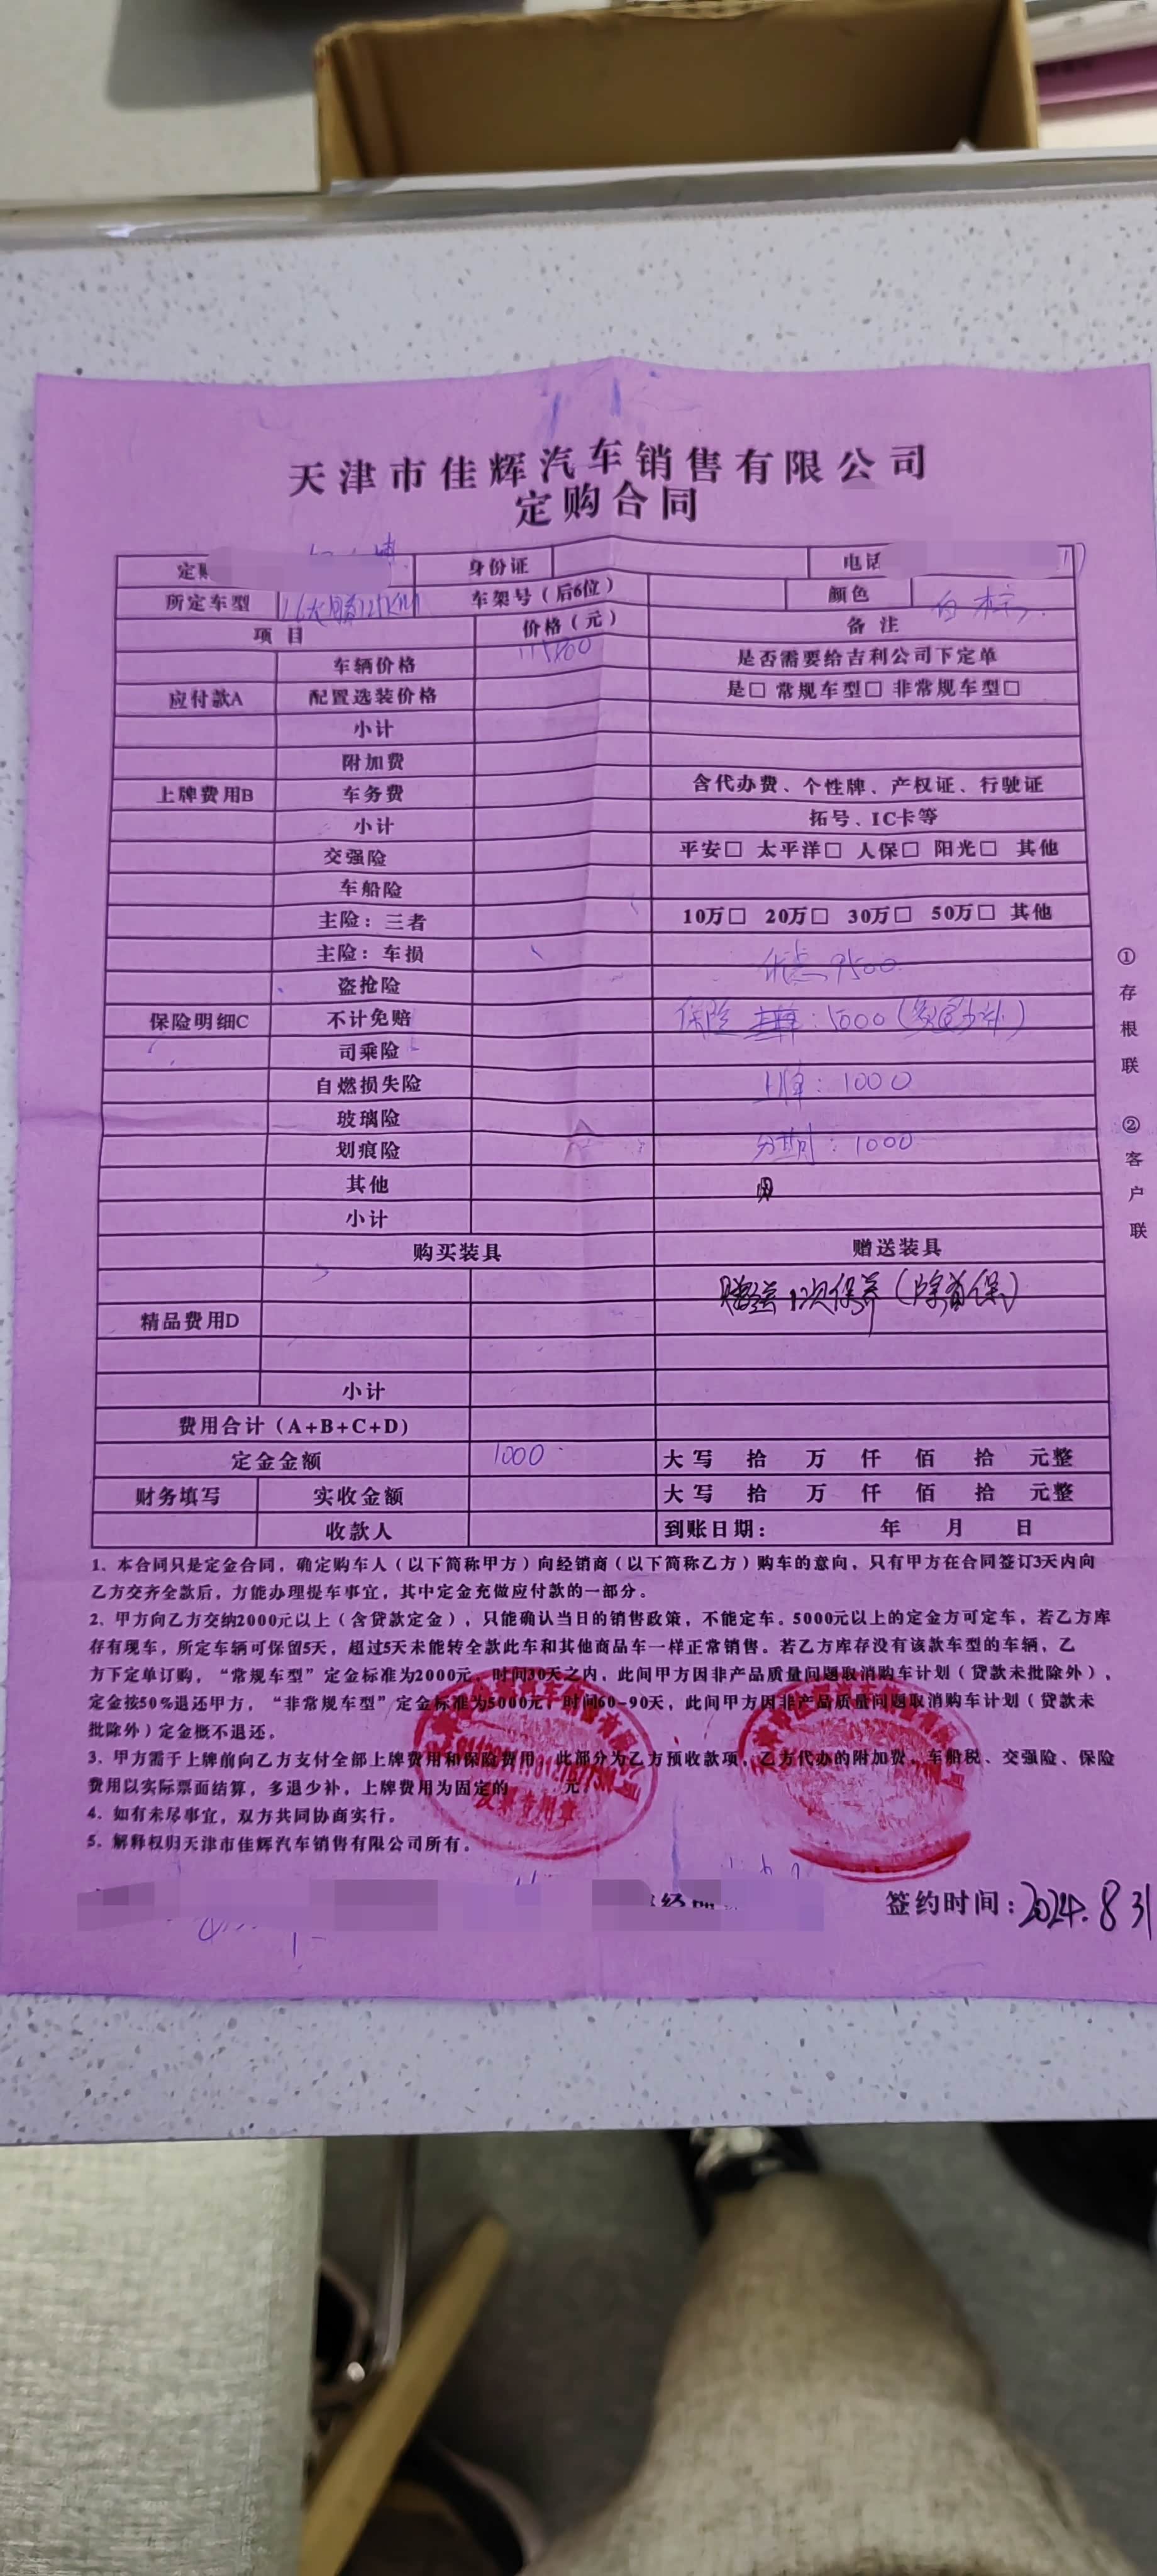 天津市佳辉汽车销售有限公司
定购合同
身份证 电话
所定车型 车架号（后6位） 颜色 白
项 目 价格（元） 备 注
车辆价格 是否需要给吉利公司下定单
应付款A 配置选装价格 是□ 常规车型□ 非常规车型□
小计
附加费
上牌费用B 车务费 含代办费、个性牌、产权证、行驶证
小计 拓号、IC卡等
交强险 平安□ 太平洋□ 人保□ 阳光□ 其他
车船险
主险：三者 10万□ 20万□ 30万□ 50万□ 其他
主险：车损
盗抢险 9500
保险明细C 不计免赔 保险
司乘险
自燃损失险 上牌：1000
玻璃险
划痕险 分期：1000
其他
小计
购买装具 赠送装具
赠送 次保养（除首保）
精品费用D
小计
费用合计（A+B+C+D）
定金金额 1000 大写 拾 万 仟 佰 拾 元整
财务填写 实收金额 大写 拾 万 仟 佰 拾 元整
收款人 到账日期： 年 月 日
①存根联 ②客户联
1. 本合同只是定金合同，确定购车人（以下简称甲方）向经销商（以下简称乙方）购车的意向，只有甲方在合同签订3天内向
乙方交齐全款后，方能办理提车事宜，其中定金充做应付款的一部分。
2. 甲方向乙方交纳2000元以上（含贷款定金），只能确认当日的销售政策，不能定车。5000元以上的定金方可定车，若乙方库
存有现车，所定车辆可保留5天，超过5天未能转全款此车和其他商品车一样正常销售。若乙方库存没有该款车型的车辆，乙
方下定单订购，“常规车型”定金标准为2000元，时间30天之内，此间甲方因非产品质量问题取消购车计划（贷款未批除外），
定金按50%退还甲方，“非常规车型”定金标准为5000元，时间60-90天，此间甲方因非产品质量问题取消购车计划（贷款未
批除外）定金概不退还。
3. 甲方需于上牌前向乙方支付全部上牌费用和保险费用，此部分为乙方预收款项，乙方代办的附加费、车船税、交强险、保险
费用以实际票面结算，多退少补，上牌费用为固定的 元。
4. 如有未尽事宜，双方共同协商实行。
5. 解释权归天津市佳辉汽车销售有限公司所有。
签约时间：2024.8 31